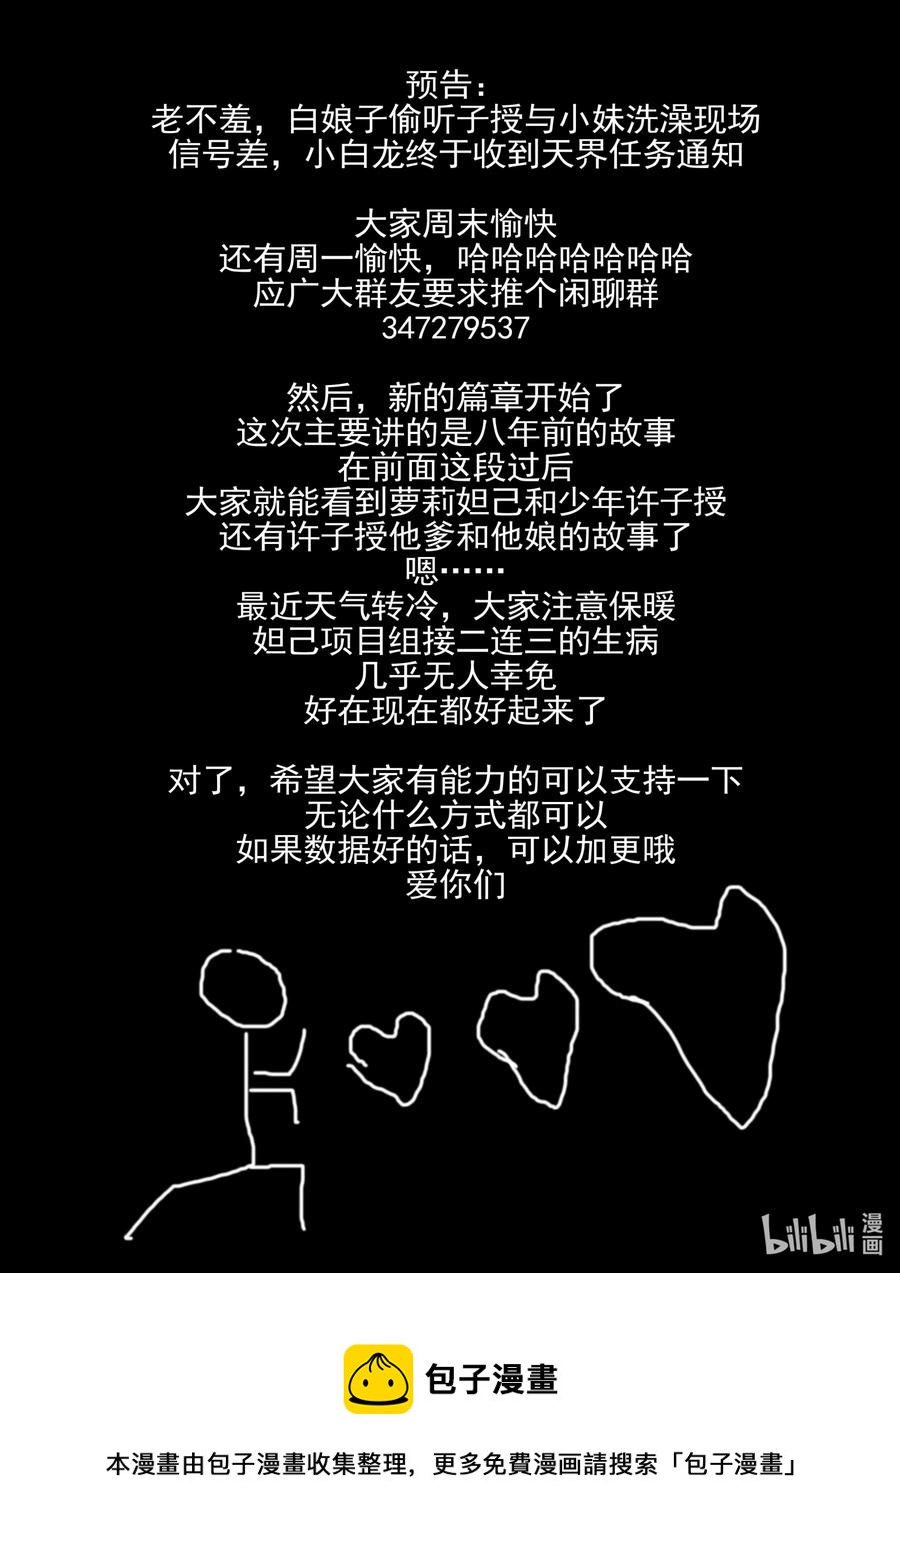 预告：
老不羞，白娘子偷听子授与小妹洗澡现场
信号差，小白龙终于收到天界任务通知
大家周末愉快
还有周一愉快，哈哈哈哈哈哈哈
应广大群友要求推个闲聊群
347279537
然后，新的篇章开始了
这次主要讲的是八年前的故事
在前面这段过后
大家就能看到萝莉妲己和少年许子授
还有许子授他爹和他娘的故事了
嗯……
最近天气转冷，大家注意保暖
妲己项目组接二连三的生病
几乎无人幸免
好在现在都好起来了
对了，希望大家有能力的可以支持一下
无论什么方式都可以
如果数据好的话，可以加更哦
爱你们
bilibili 漫画
包子漫畫
本漫畫由包子漫畫收集整理，更多免費漫画請搜索「包子漫畫」